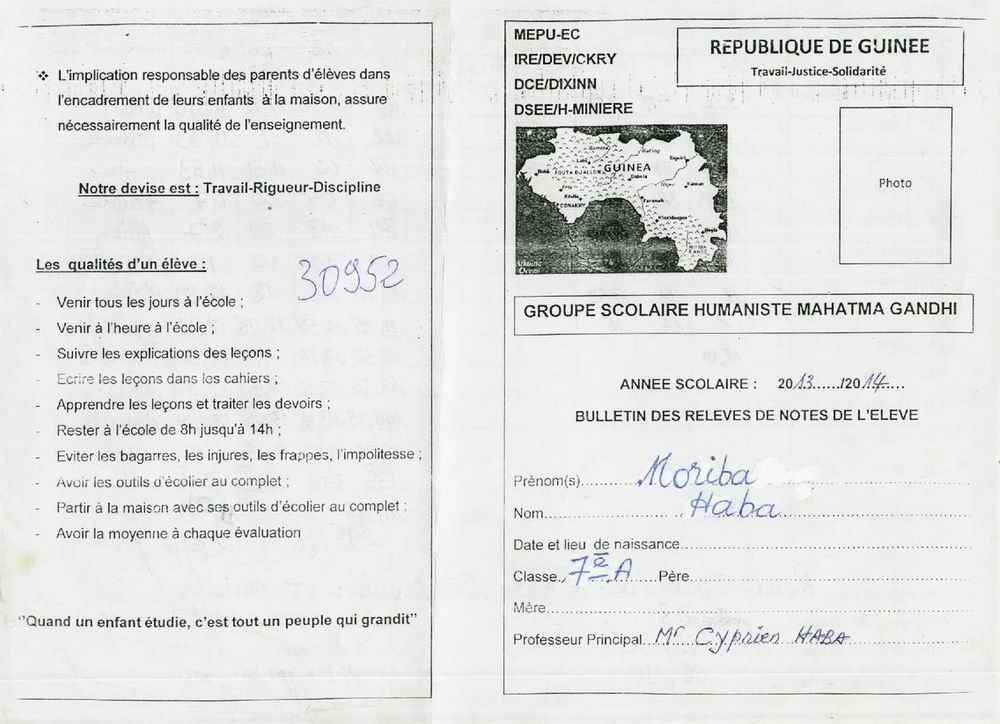 ❖ L'implication responsable des parents d'élèves dans
l'encadrement de leurs enfants à la maison, assure
nécessairement la qualité de l'enseignement.
Notre devise est : Travail-Rigueur-Discipline
Les qualités d'un élève :
30952
- Venir tous les jours à l'école ;
- Venir à l'heure à l'école ;
- Suivre les explications des leçons ;
- Ecrire les leçons dans les cahiers ;
- Apprendre les leçons et traiter les devoirs ;
- Rester à l'école de 8h jusqu'à 14h ;
- Eviter les bagarres, les injures, les frappes, l'impolitesse ;
- Avoir les outils d'écolier au complet ;
- Partir à la maison avec ses outils d'écolier au complet ;
- Avoir la moyenne à chaque évaluation
"Quand un enfant étudie, c'est tout un peuple qui grandit"
MEPU-EC
IRE/DEV/CKRY
DCE/DIXINN
DSEE/H-MINIERE
REPUBLIQUE DE GUINEE
Travail-Justice-Solidarité
GUINEA
FOUTA DJALLON
CONAKRY
Faranah
Niger
Photo
GROUPE SCOLAIRE HUMANISTE MAHATMA GANDHI
ANNEE SCOLAIRE : 2013....../2014....
BULLETIN DES RELEVES DE NOTES DE L'ELEVE
Prénom(s)..........Moriba..........
Nom..........Haba..........
Date et lieu de naissance..........
Classe..7e A.....Père..........
Mère..........
Professeur Principal..Mr Cyprien HABA..........